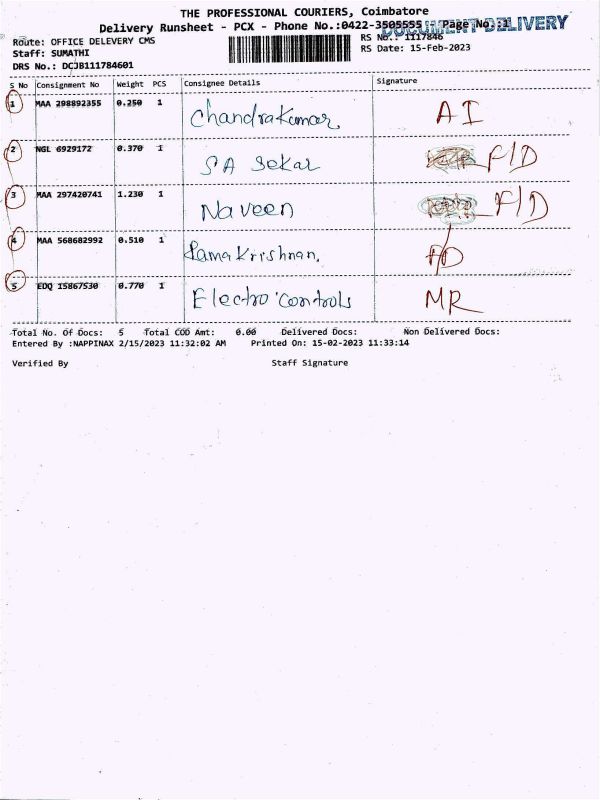 THE PROFESSIONAL COURIERS, Coimbatore
Delivery Runsheet - PCX - Phone No.:0422-3505555 Page No.:1
DOCUMENT DELIVERY
Route: OFFICE DELEVERY CMS
RS No.: 1117846
Staff: SUMATHI
RS Date: 15-Feb-2023
DRS No.: DCJB111784601
S No Consignment No Weight PCS Consignee Details Signature
1 MAA 298892355 0.250 1 Chandrakumar AI
2 NGL 6929172 0.370 1 SA Sekar F/D
3 MAA 297420741 1.230 1 Naveen F/D
4 MAA 568682992 0.510 1 Ramakrishnan.
5 EDQ 15867530 0.770 1 Electro controls MR
Total No. Of Docs: 5 Total COD Amt: 0.00 Delivered Docs: Non Delivered Docs:
Entered By :NAPPINAX 2/15/2023 11:32:02 AM Printed On: 15-02-2023 11:33:14
Verified By Staff Signature